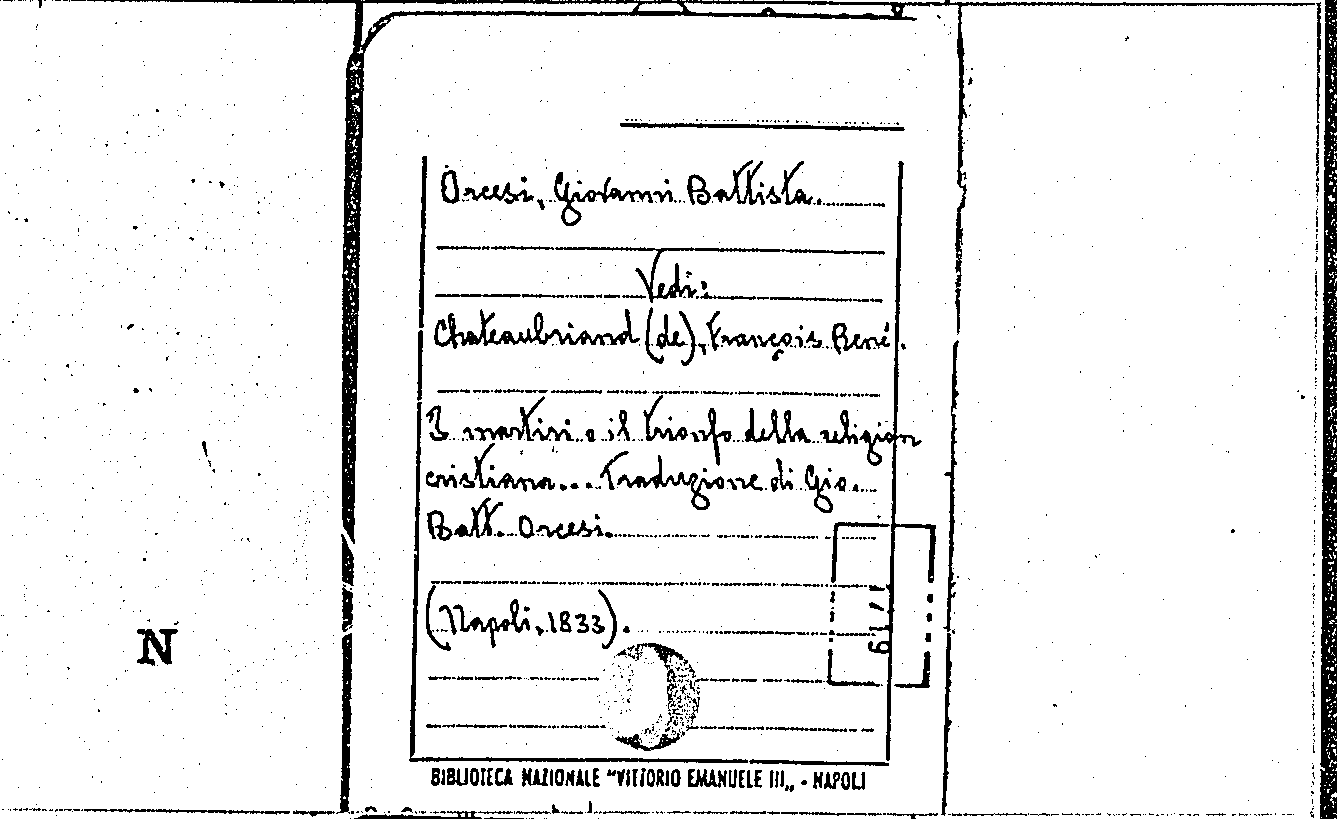 Orcesi, Giovanni Battista.
Vedi:
Chateaubriand (de), François René.
I martiri o il trionfo della religion
cristiana... Traduzione di Gio.
Batt. Orcesi.
(Napoli, 1833).
N
BIBLIOTECA NAZIONALE "VITTORIO EMANUELE III„ - NAPOLI